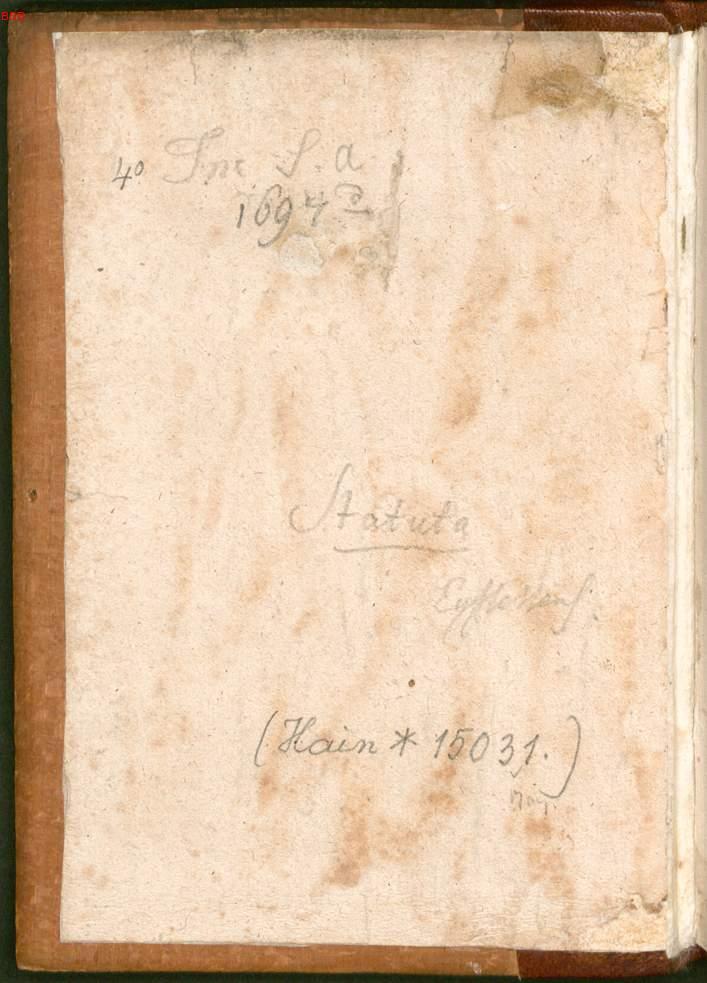 BSB
4° Inc S. a
1694 d
Statuta
(Hain * 15031.)